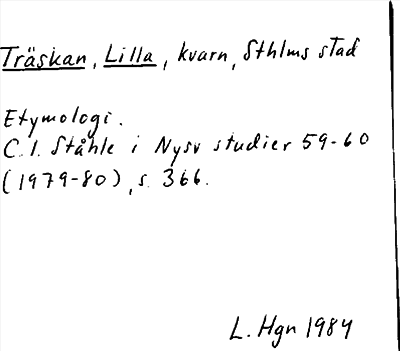 Träskan, Lilla, kvarn, Sthlms stad
Etymologi.
C.I. Ståhle i Nysv studier 59-60
(1979-80), s. 366.
L. Hgn 1984